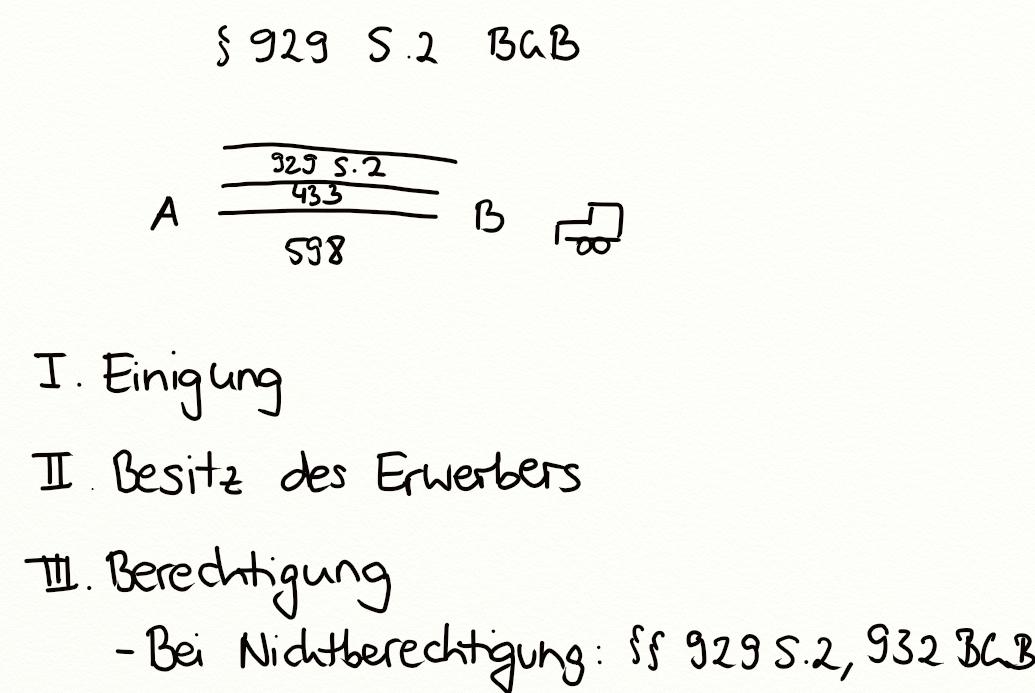 § 929 S.2 BGB
929 S.2
433
A B
598
I. Einigung
II. Besitz des Erwerbers
III. Berechtigung
- Bei Nichtberechtigung: §§ 929 S.2, 932 BGB